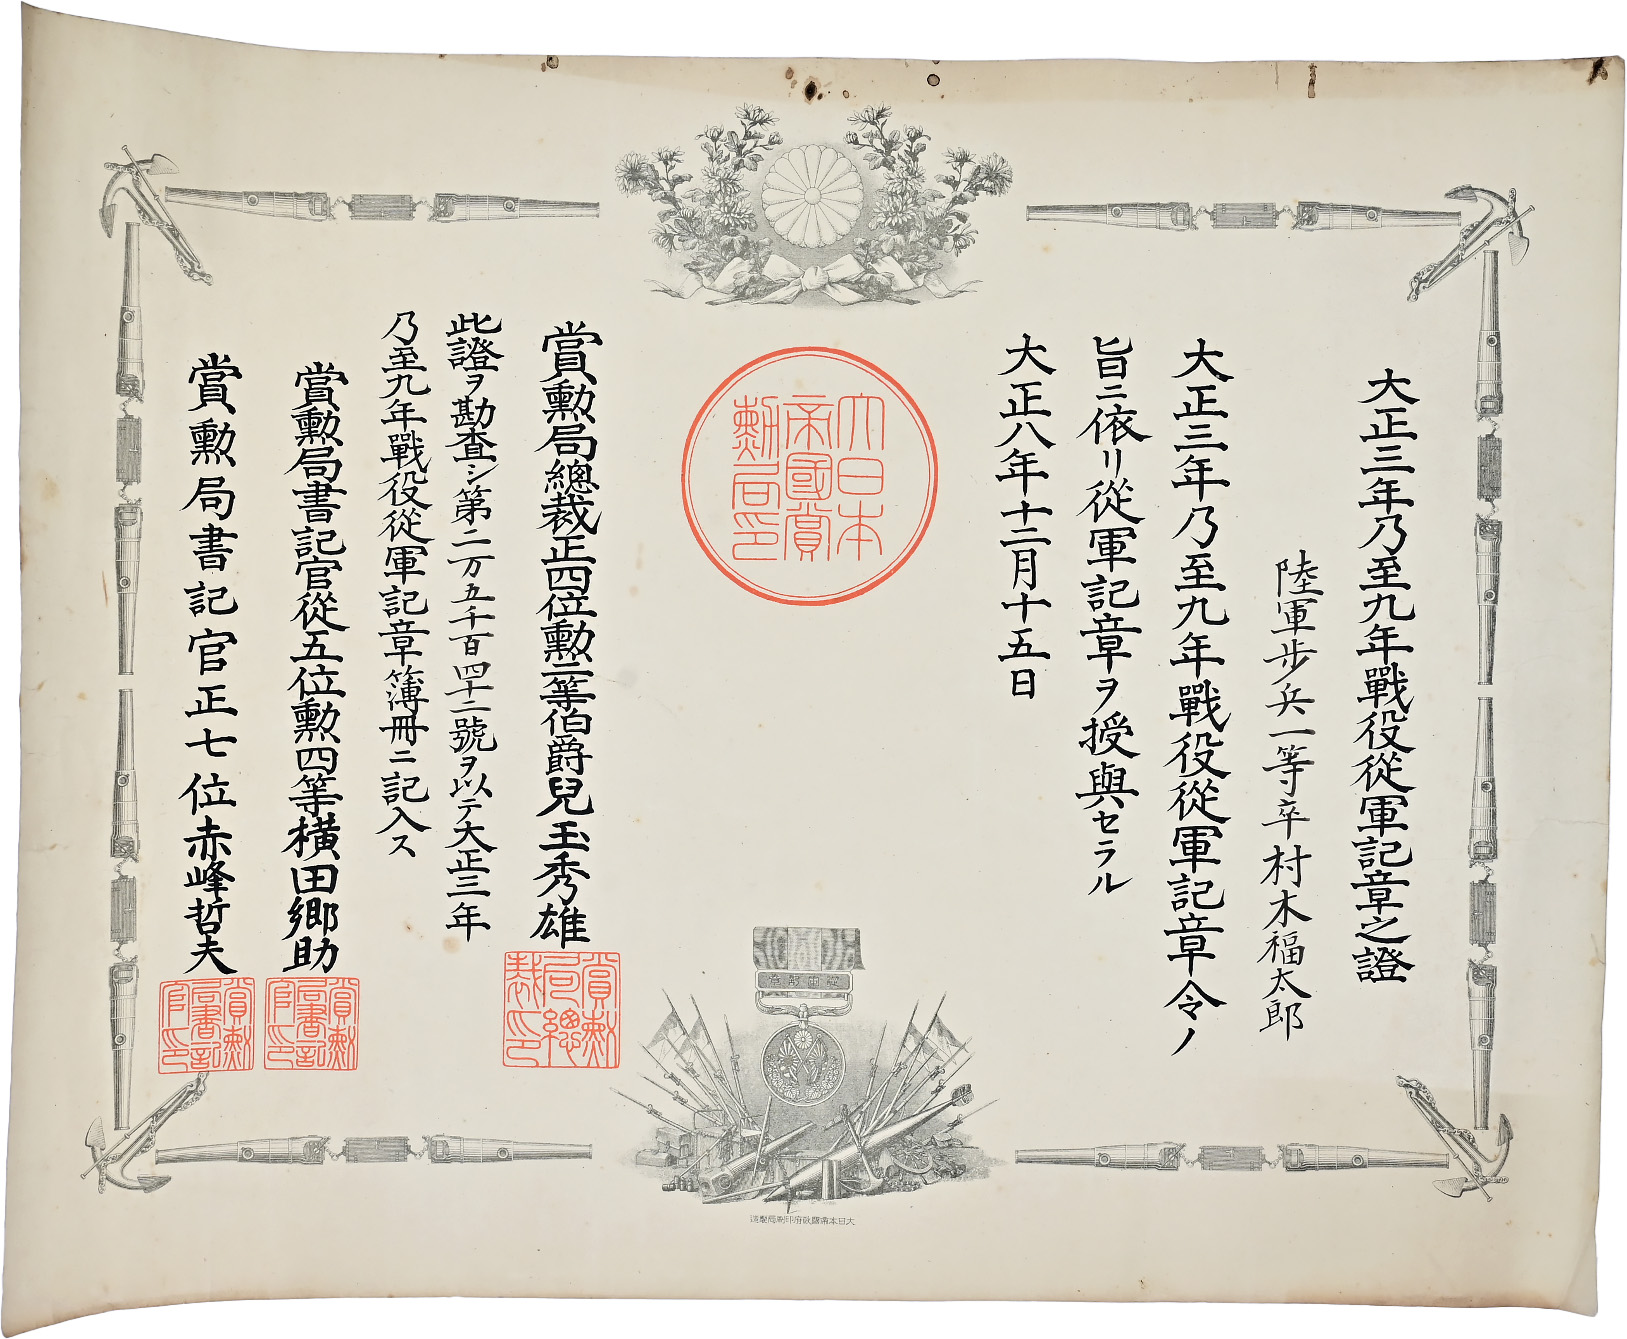 大正三年乃至九年戰役從軍記章之證
陸軍歩兵一等卒村木福太郎
大正三年乃至九年戰役從軍記章令ノ
旨ニ依リ從軍記章ヲ授與セラル
大正八年十二月十五日
大日本
帝國賞
勲局印
賞勲局總裁正四位勲二等伯爵兒玉秀雄
賞勲
局總
裁印
此證ヲ勘査シ第二万五千百四十二號ヲ以テ大正三年
乃至九年戰役從軍記章簿冊ニ記入ス
賞勲局書記官從五位勲四等横田郷助
賞勲
局書記
官印
賞勲局書記官正七位赤峰哲夫
賞勲
局書記
官印
章記軍從
造製局刷印府政國帝本日大